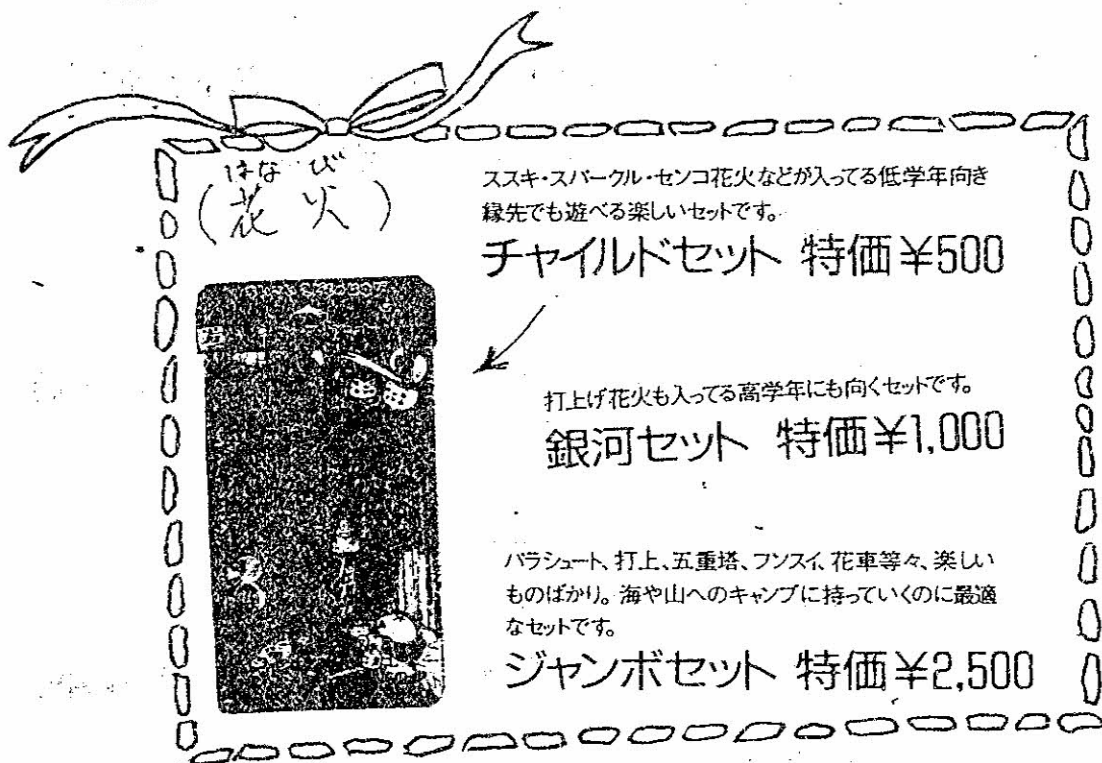 はなび
(花火)
ススキ・スパークル・センコ花火などが入ってる低学年向き
縁先でも遊べる楽しいセットです。
チャイルドセット 特価¥500
打上げ花火も入ってる高学年にも向くセットです。
銀河セット 特価¥1,000
パラシュート、打上、五重塔、フンスイ、花車等々、楽しい
ものばかり。海や山へのキャンプに持っていくのに最適
なセットです。
ジャンボセット 特価¥2,500